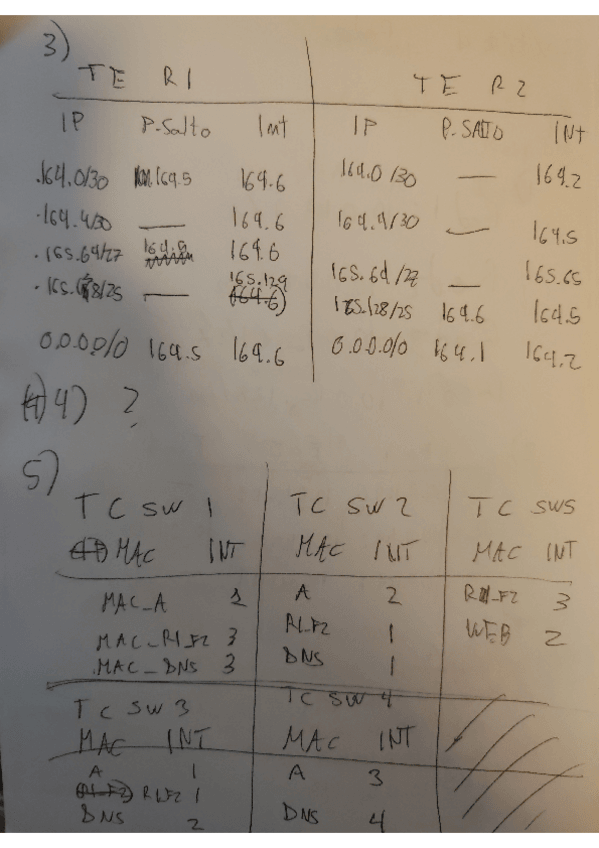 3)
TE R1 TE R2
IP P.Salto Int IP P.SALTO INt
.164.0/30 164.5 164.6 164.0/30 — 164.2
.164.4/30 — 164.6 164.4/30 — 164.5
.165.64/27 164.6 165.64/27 — 165.65
— 165.129 165.128/25 164.6 164.5
0.0.0.0/0 164.5 164.6 0.0.0.0/0 164.1 164.2
4) ?
5)
TC SW 1 TC SW 2 TC SW5
MAC INT MAC INT MAC INT
MAC_A 2 A 2 R1_F2 3
MAC_R1_F2 3 R1_F2 1 WEB 2
MAC_DNS 3 DNS 1
TC SW 3 TC SW 4
MAC INT MAC INT
A 1 A 3
R1_F2 1
DNS 2 DNS 4